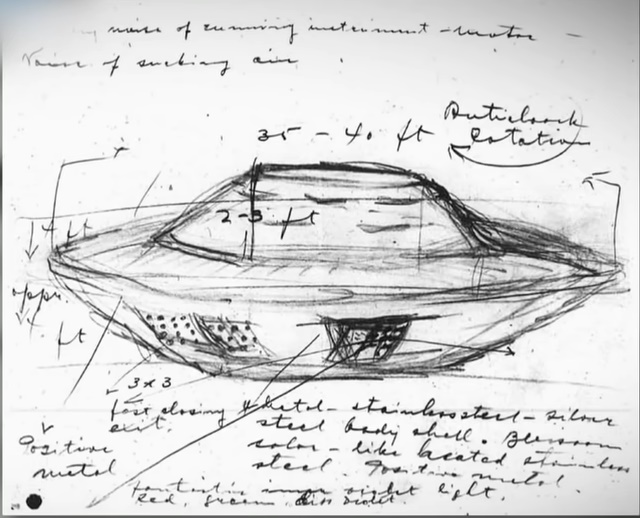 noise of running instrument - motor -
Noise of sucking air
Anticlock
35 - 40 ft
Rotation
2-3 ft
4 ft
appr.
4 ft
3 x 3
fast closing
exit.
Metal - stainless steel - silver
steel body shell. Blossom
color - like heated stainless
steel. Positive metal.
Positive
metal
fantastic inner violet light.
red, green, violet.